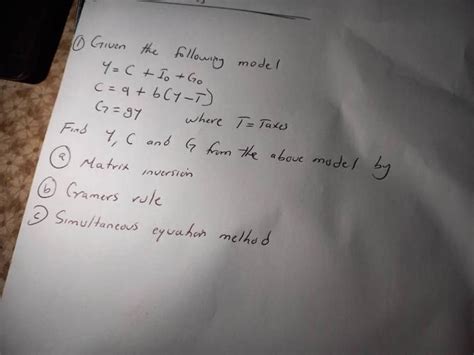 ① Given the following model
Y = C + I₀ + G₀
C = a + b(Y - T)
G = gY where T = Taxes
Find Y, C and G from the above model by
ⓐ Matrix inversion
ⓑ Cramers rule
ⓒ Simultaneous equation method